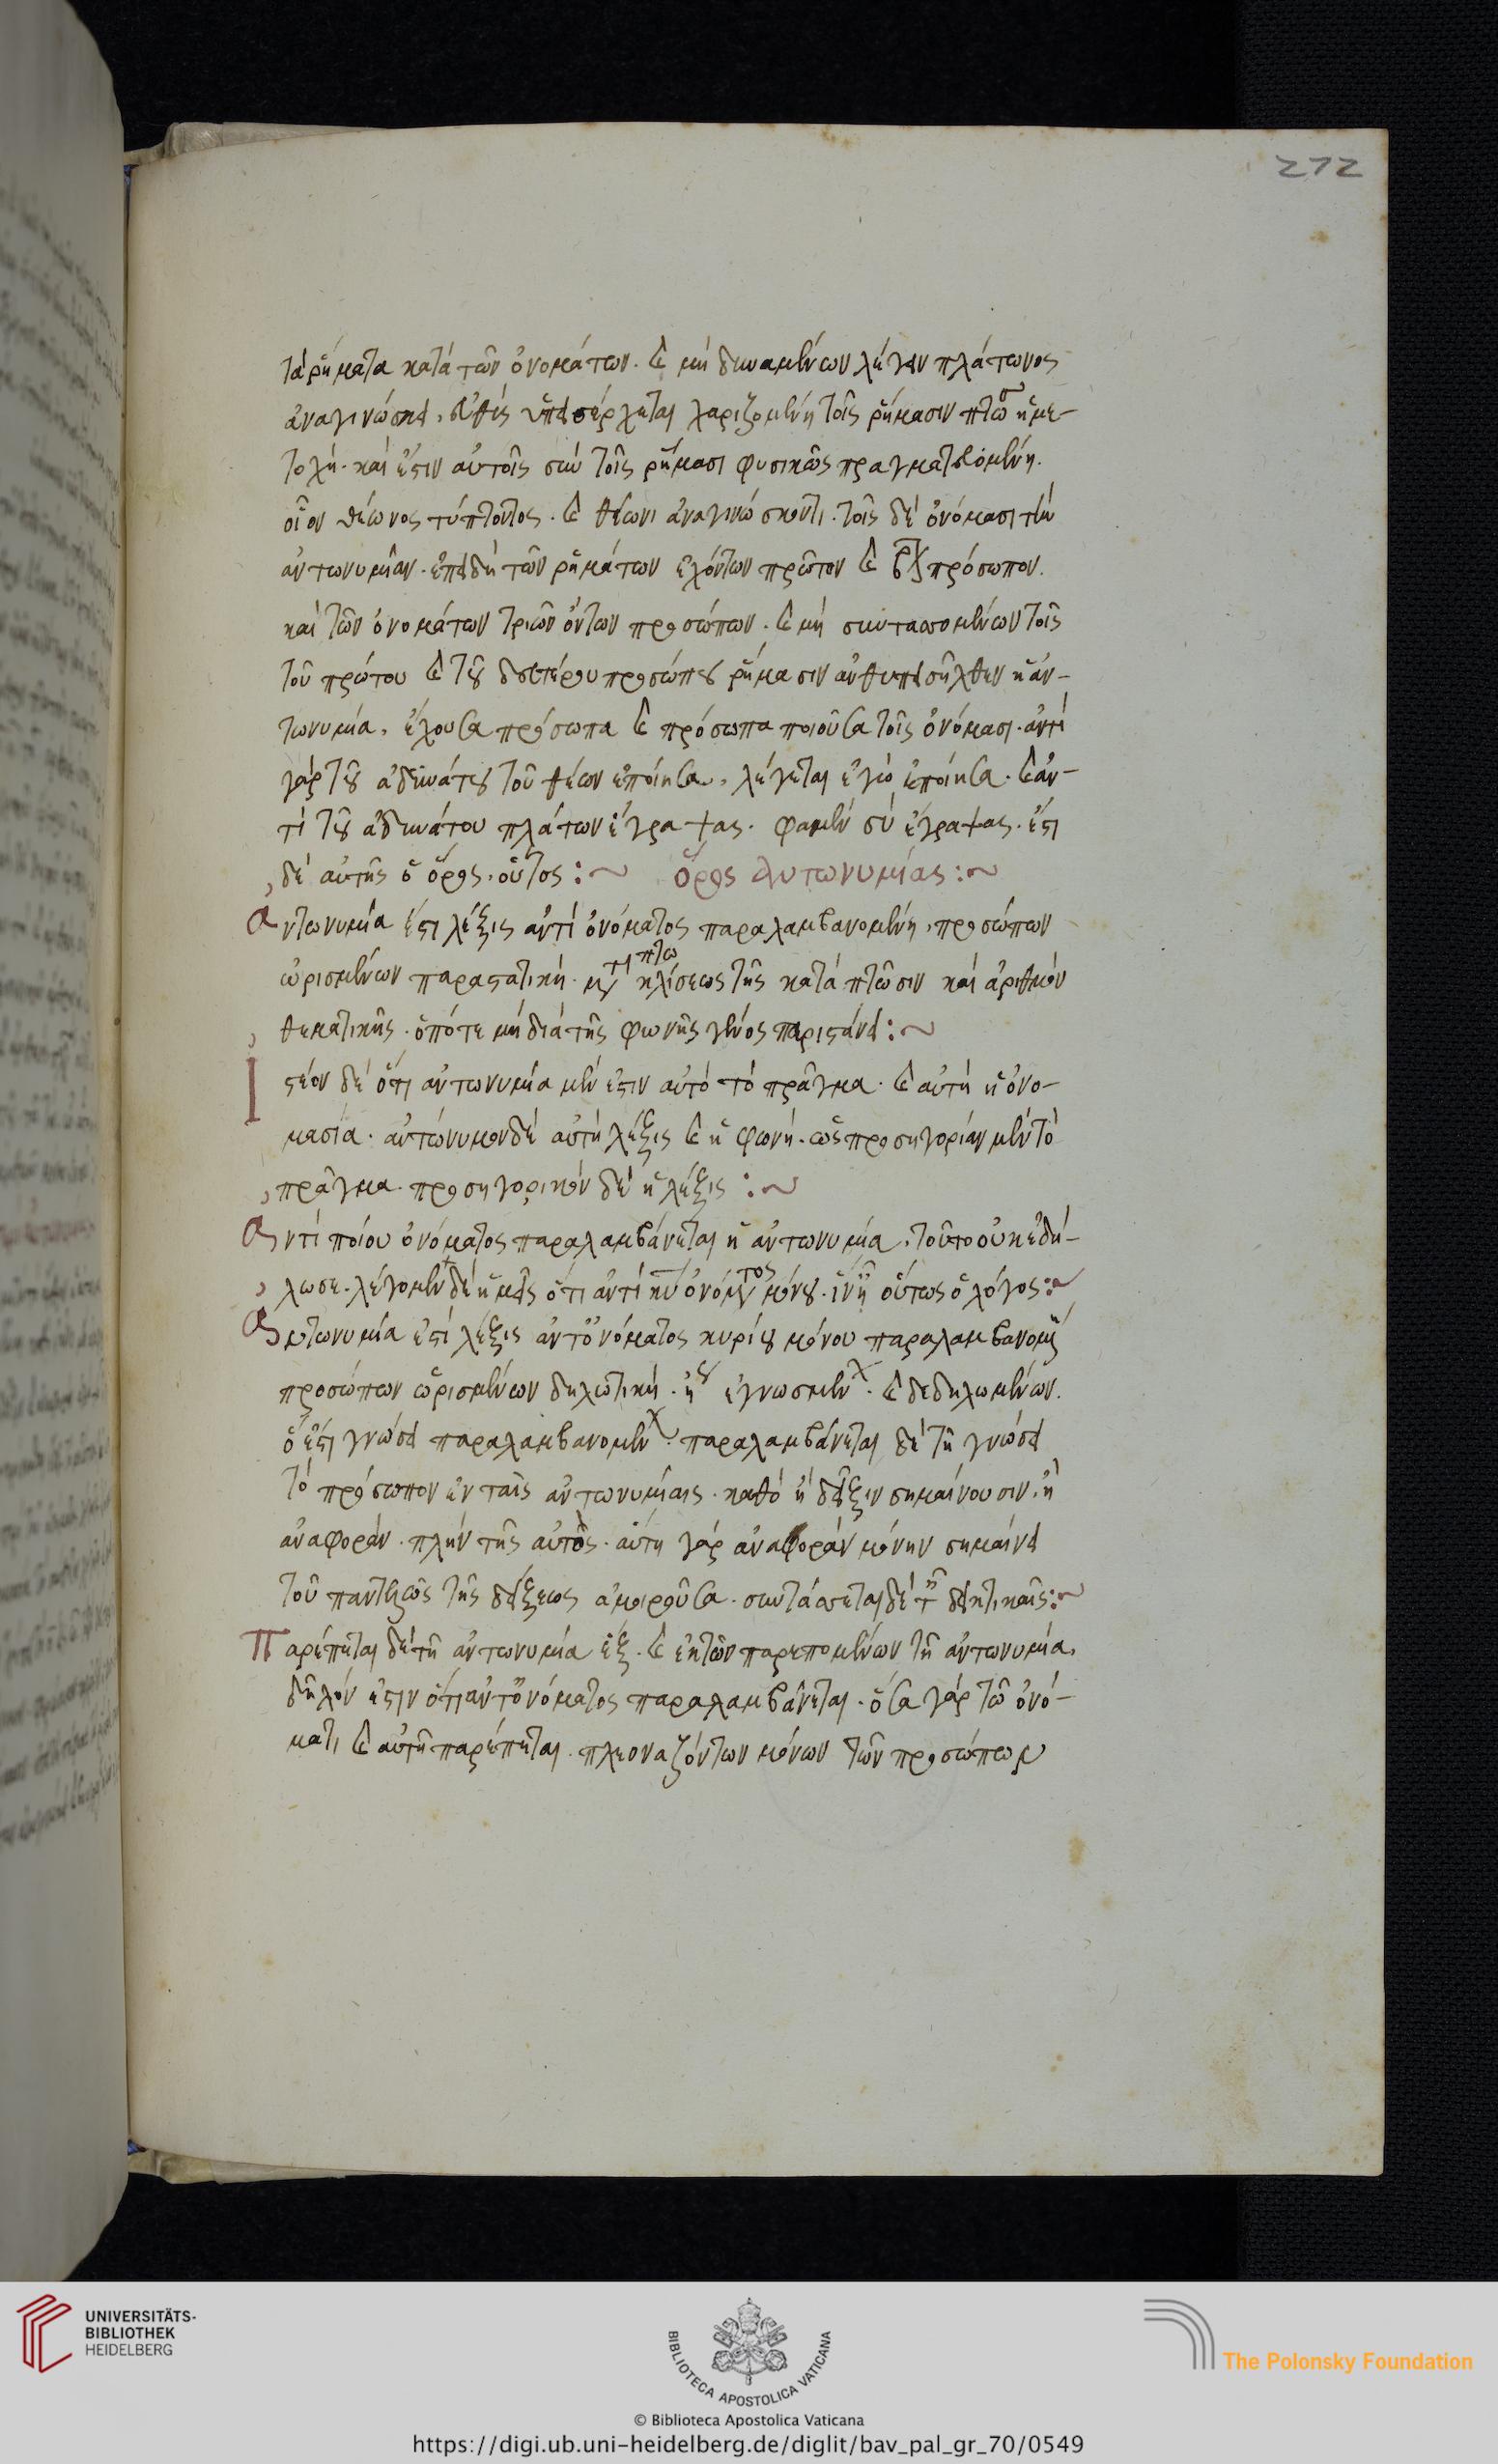 272
τὰ ῥήματα κατὰ τῶν ὀνομάτων. καὶ μὴ δυναμένων λέγειν πλάτωνος
ἀναγινώσκει, εὐθὺς ὑπεισέρχεται χαριζομένη τοῖς ῥήμασιν πτώσ ἡ με-
τοχή. καὶ ἔστιν αὐτοῖς σὺν τοῖς ῥήμασι φυσικῶς πραγματευομένη.
οἷον θέωνος τύπτοντος. καὶ θέωνι ἀναγινώσκοντι. τοῖς δὲ ὀνόμασι τὴν
ἀντωνυμίαν. ἐπειδὴ τῶν ῥημάτων ἐχόντων πρῶτον καὶ πρόσωπον.
καὶ τῶν ὀνομάτων τριῶν ὄντων προσώπων. καὶ μὴ συντασσομένων τοῖς
τοῦ πρώτου καὶ τοῦ δευτέρου προσώπου ῥήμασιν ἀνθυπεισῆλθεν ἡ ἀν-
τωνυμία, ἔχουσα πρόσωπα καὶ πρόσωπα ποιοῦσα τοῖς ὀνόμασι. ἀντὶ
γὰρ τοῦ ἀδυνάτου τοῦ θέων ἐποίησα, λέγεται ἐγὼ ἐποίησα. καὶ ἀν-
τὶ τοῦ ἀδυνάτου πλάτων ἔγραψας. φαμὲν σὺ ἔγραψας. ἔστι
δὲ αὐτῆς ὁ ὅρος, οὗτος :~ ὅρος ἀντωνυμίας :~
Αντωνυμία ἐστὶ λέξις ἀντὶ ὀνόματος παραλαμβανομένη, προσώπων
ὡρισμένων παραστατική. κλίσεως τῆς κατὰ πτῶσιν καὶ ἀριθμὸν
θεματικῆς. ὁπότε μὴ διὰ τῆς φωνῆς γένος παριστάνει :~
Ιστέον δὲ ὅτι ἀντωνυμία μέν ἐστιν αὐτὸ τὸ πρᾶγμα. καὶ αὐτὴ ἡ ὀνο-
μασία. ἀντώνυμον δὲ αὐτὴ λέξις καὶ ἡ φωνή. ὡς προσηγορίαν μὲν τὸ
πρᾶγμα. προσηγορικὸν δὲ ἡ λέξις :~
Αντὶ ποίου ὀνόματος παραλαμβάνεται ἡ ἀντωνυμία, τοῦτο οὐκ ἐδή-
λωσε. λέγομεν δὲ ἡμεῖς ὅτι ἀντὶ κυ ὀνόμτος μόνου. ἵν ᾖ οὕτως ὁ λόγος :~
Αντωνυμία ἐστὶ λέξις ἀντ ὀνόματος κυρίου μόνου παραλαμβανομέν
προσώπων ὡρισμένων δηλωτική. ἐγνωσμέν. καὶ δεδηλωμένων.
ὅ ἐστι γνώσει παραλαμβανομέν. παραλαμβάνεται δὲ τῇ γνώσει
τὸ πρόσωπον ἐν ταῖς ἀντωνυμίαις. καθὸ ἢ δεῖξιν σημαίνουσιν, ἢ
ἀναφοράν. πλὴν τῆς αὐτός. αὕτη γὰρ ἀναφορὰν μόνην σημαίνει
τοῦ παντελῶς τῆς δείξεως ἀμοιροῦσα. συντάσσεται δὲ τ δεικτικαῖς :~
Παρέπεται δὲ τῇ ἀντωνυμία ἕξ. καὶ ἐκ τῶν παρεπομένων τῇ ἀντωνυμία,
δῆλόν ἐστιν ὅτι ἀντ ὀνόματος παραλαμβάνεται. ὅσα γὰρ τῷ ὀνό-
ματι καὶ αὐτῇ παρέπεται. πλεοναζόντων μόνων τῶν προσώπων
UNIVERSITÄTS-
BIBLIOTHEK
HEIDELBERG
BIBLIOTECA APOSTOLICA VATICANA
The Polonsky Foundation
© Biblioteca Apostolica Vaticana
https://digi.ub.uni-heidelberg.de/diglit/bav_pal_gr_70/0549